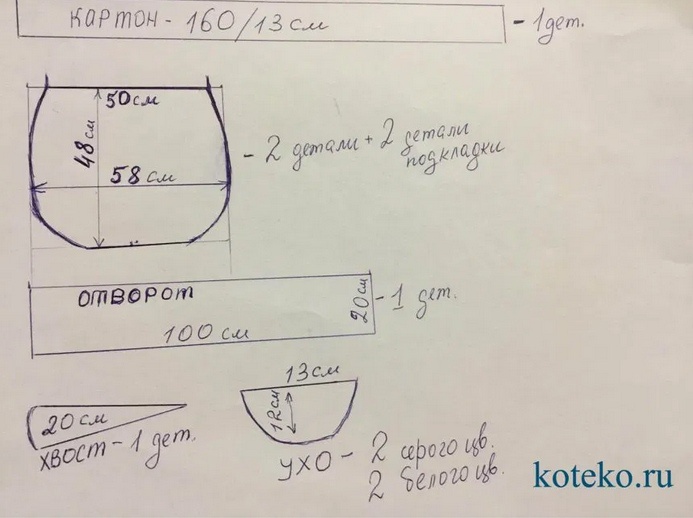 КАРТОН - 160/13 см - 1 дет.
50 см
48 см
58 см
- 2 детали + 2 детали
подкладки
ОТВОРОТ
20 см - 1 дет.
100 см
13 см
12 см
20 см
ХВОСТ - 1 дет.
УХО - 2 серого цв.
2 белого цв.
koteko.ru